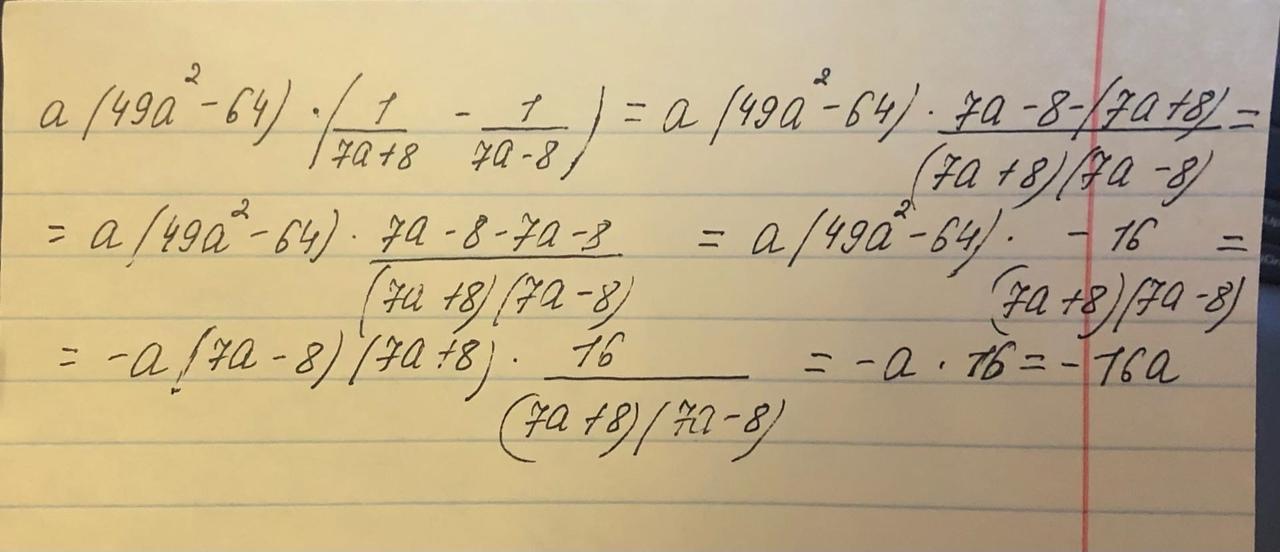 a(49a²-64)·(1/(7a+8) - 1/(7a-8)) = a(49a²-64)· (7a-8-(7a+8))/((7a+8)(7a-8)) =
= a(49a²-64)· (7a-8-7a-8)/((7a+8)(7a-8)) = a(49a²-64)· -16/((7a+8)(7a-8)) =
= -a(7a-8)(7a+8)· 16/((7a+8)(7a-8)) = -a·16 = -16a